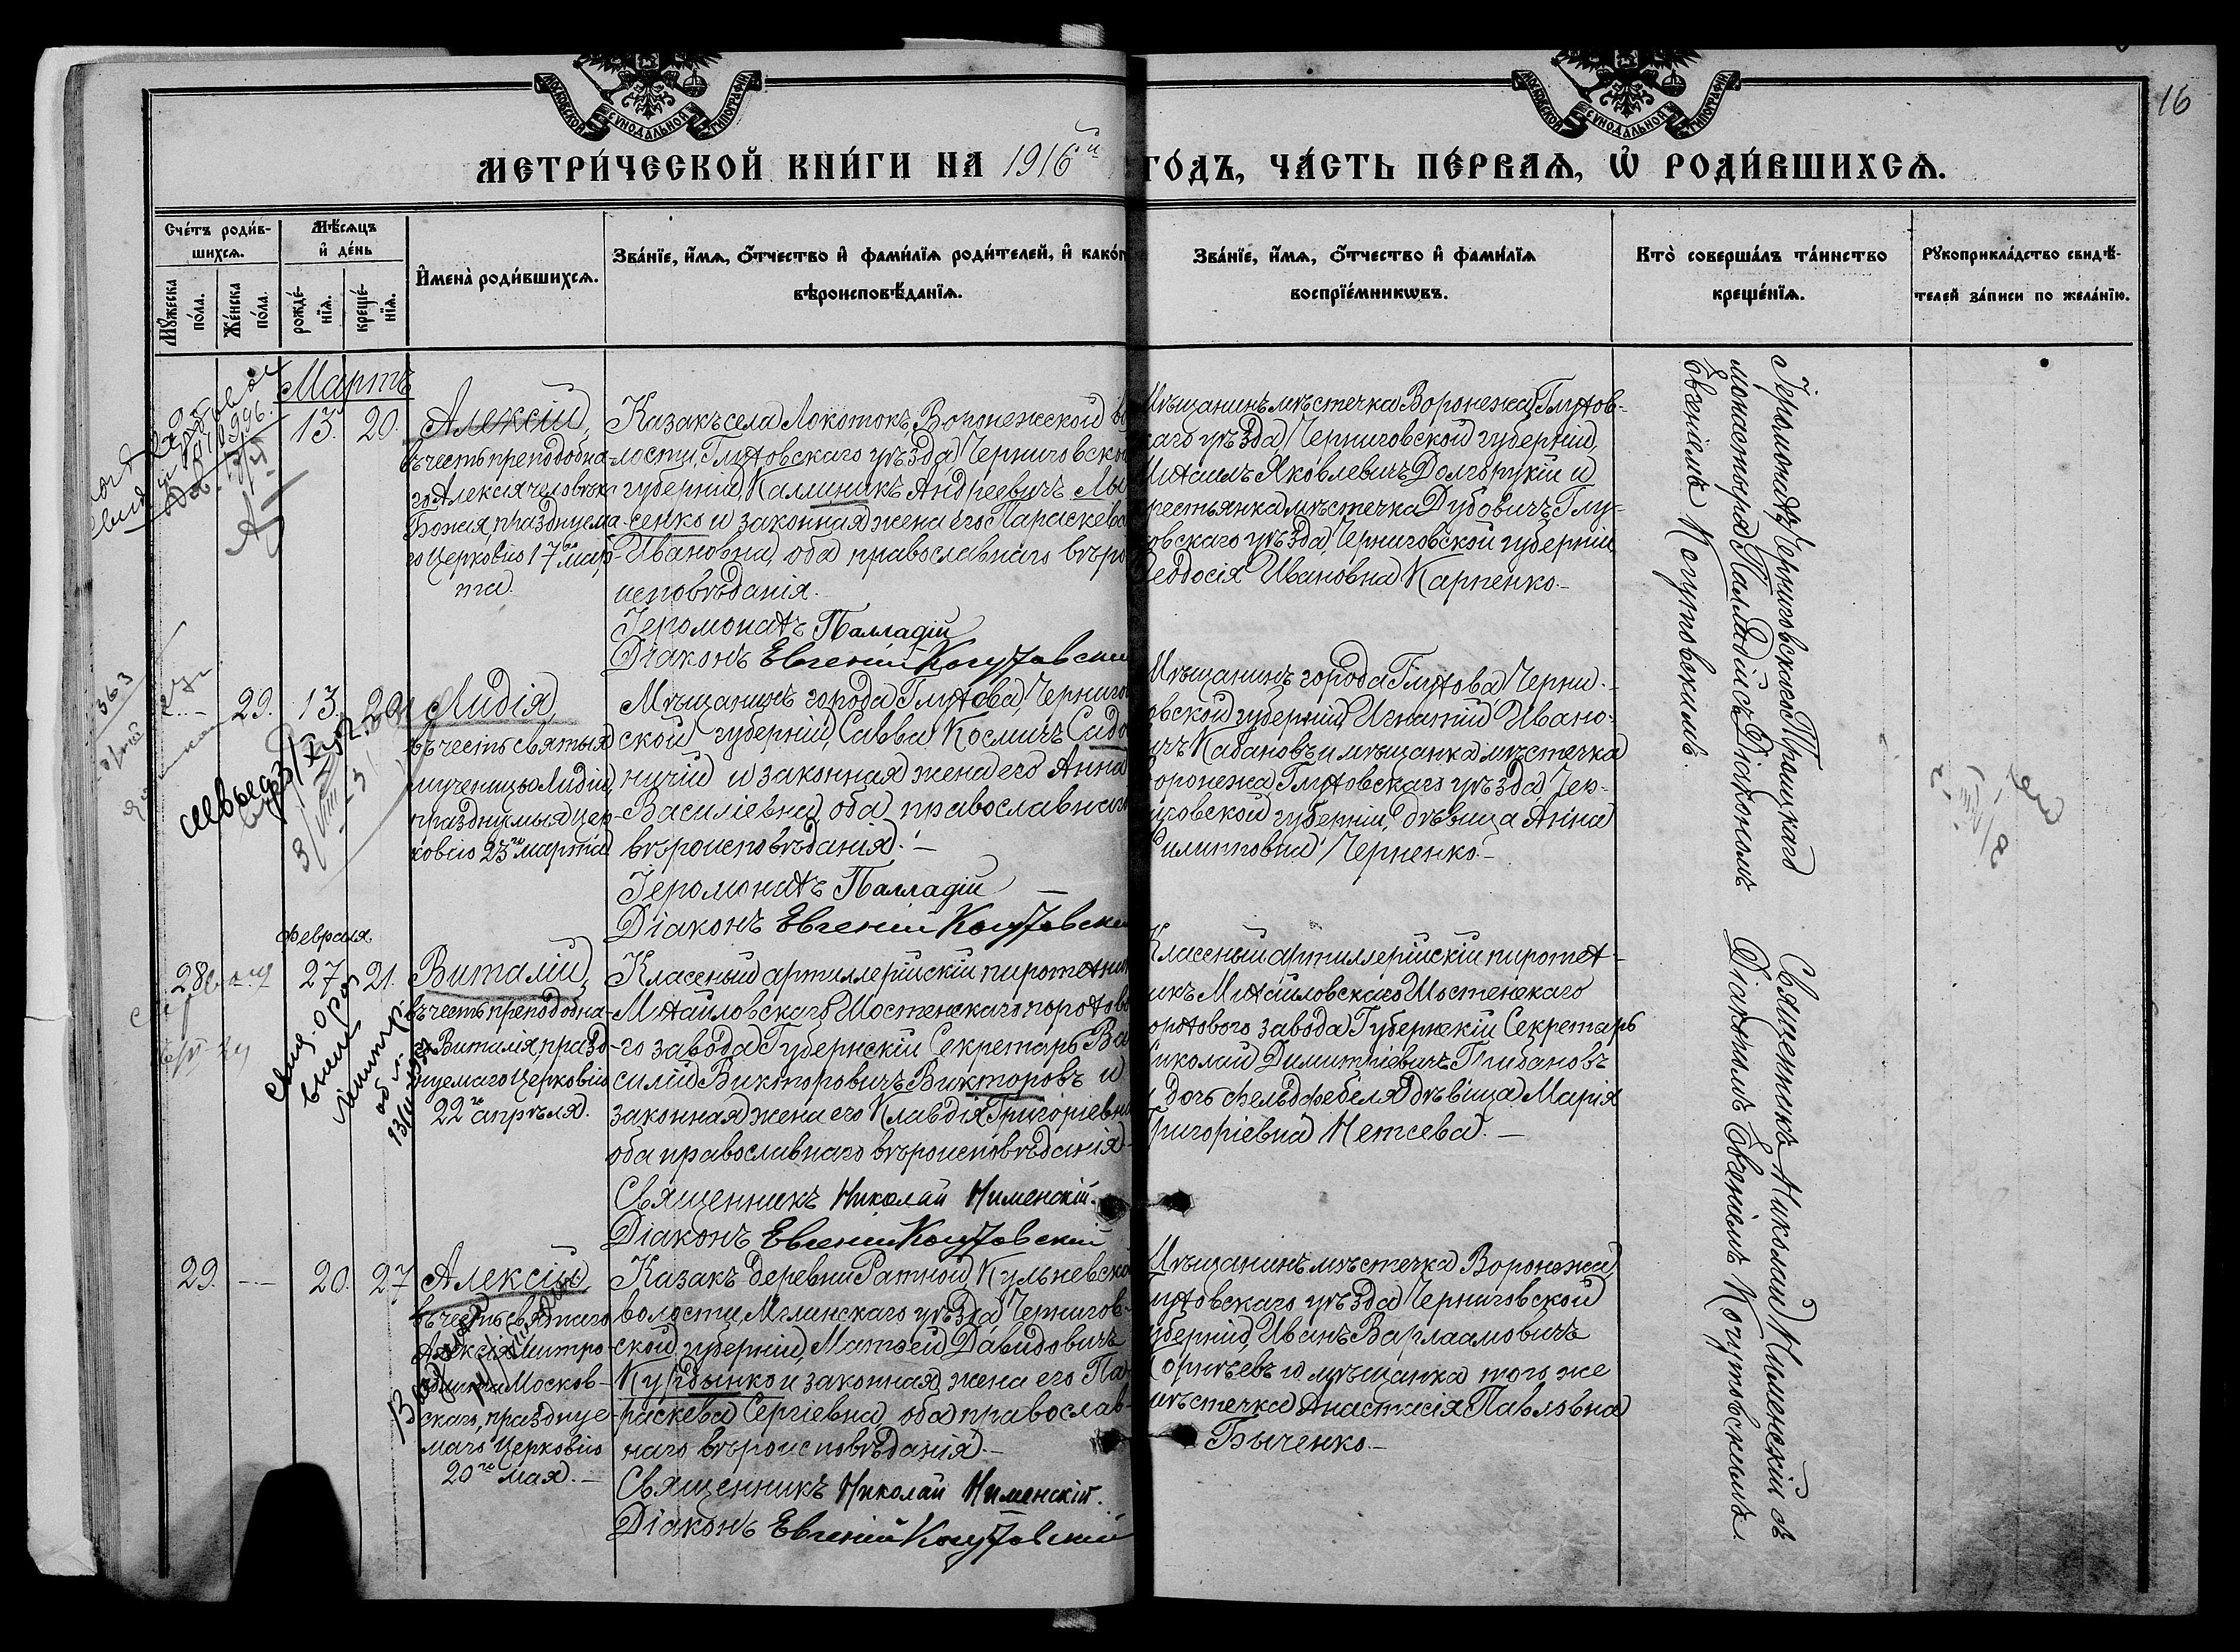 МОСКОВСКОЙ СѴНОДАЛЬНОЙ ТИПОГРАФІИ
МОСКОВСКОЙ СѴНОДАЛЬНОЙ ТИПОГРАФІИ
16
МЕТРИ́ЧЕСКОЙ КНИ́ГИ НА 1916й ГО́ДЪ, ЧА́СТЬ ПЕ́РВАѦ, Ѡ҆ РОДИ́ВШИХСѦ.
Сче́тъ роди́в-
шихсѧ.
Мѣ́сѧцъ
и҆ де́нь
Мꙋ́жеска по́ла.
Же́нска по́ла.
рожде́-
нїѧ.
креще́-
нїѧ.
И҆мена̀ роди́вшихсѧ.
Зва́нїе, и҆́мѧ, ѻ҆́тчество и҆ фами́лїѧ роди́телей, и҆ како́г
вѣроисповѣ́данїѧ.
Зва́нїе, и҆́мѧ, ѻ҆́тчество и҆ фами́лїѧ
воспрїе́мникѡвъ.
Кто̀ соверша́лъ та́инство
креще́нїѧ.
Рꙋкоприкла́дство свидѣ́-
телей за́писи по жела́нїю.
Мартъ
13. 20. Алексій,
въ честь преподобна-
го Алексія человѣка
Божія, празднуема-
го Церковію 17го мар-
та.
Казакъ села Локотокъ, Воронежской во
лости, Глуховскаго уѣзда Черниговской
губерніи, Каллиникъ Андреевичъ Лы
сенко и законная жена его Параскева
Ивановна, оба православнаго вѣро
исповѣданія.
Іеромонахъ Палладій
Діаконъ Евгеній Когутовскій
Мѣщанинъ мѣстечка Воронежа, Глухов-
скаго уѣзда, Черниговской губерніи,
Михаилъ Яковлевичъ Долгорукій и
крестьянка мѣстечка Дубовичъ, Глу-
ховскаго уѣзда, Черниговской губерніи
Ѳеодосія Ивановна Карпенко.-
Іеромонахъ Черниговскаго Троицкаго
монастыря Палладій съ Діакономъ
Евгеніемъ Когутовскимъ.
29. 13. 20. Лидія,
въ честь святыя
мученицы Лидіи,
празднуемыя Цер-
ковію 23го марта
Мѣщанинъ города Глухова, Чернигов
ской губерніи, Савва Космичъ Садо
ничій и законная жена его Анна
Василіевна, оба православнаго
вѣроисповѣданія.-
Іеромонахъ Палладій
Діаконъ Евгеній Когутовскій
Мѣщанинъ города Глухова Черни-
говской губерніи, Игнатій Ивано-
вичъ Кабановъ и мѣщанка мѣстечка
Воронежа, Глуховскаго уѣзда, Чер-
ниговской губерніи, дѣвица Анна
Филипповна Черненко.-
Февраля
28. 27 21. Виталій,
въ честь преподобна-
го Виталія, празд-
нуемаго Церковію
22го апрѣля.
Классный артиллерійскій пиротехникъ
Михайловскаго Шостенскаго порохово
го завода Губернскій Секретарь Ва
силій Викторовичъ Викторовъ и
законная жена его Клавдія Григоріевна
оба православнаго вѣроисповѣданія-
Священникъ Николай Нименскій.
Діаконъ Евгеній Когутовскій
Классный артиллерійскій пиротех-
никъ Михайловскаго Шостенскаго
порохового завода Губернскій Секретарь
Николай Димитріевичъ Грибановъ
и дочь фельдфебеля дѣвица Марія
Григоріевна Нетсева.-
Священникъ Николай Нименскій съ
Діакономъ Евгеніемъ Когутовскимъ.
29. 20. 27 Алексій,
въ честь святаго
Алексія Митро-
полита Москов-
скаго, праздNуе-
маго Церковію
20го мая.-
Казакъ деревни Ратной, Кульневской
волости, Мглинскаго уѣзда, Чернигов-
ской губерніи, Матѳей Давидовичъ
Курдынко и законная жена его Па-
раскева Сергіевна, оба православ-
наго вѣроисповѣданія.-
Священникъ Николай Нименскій.
Діаконъ Евгеній Когутовскій
Мѣщанинъ мѣстечка Воронежа,
Глуховскаго уѣзда Черниговской
губерніи, Иванъ Варлаамовичъ
Корнѣевъ и мѣщанка того же
мѣстечка Анастасія Павловна
Быченко.-